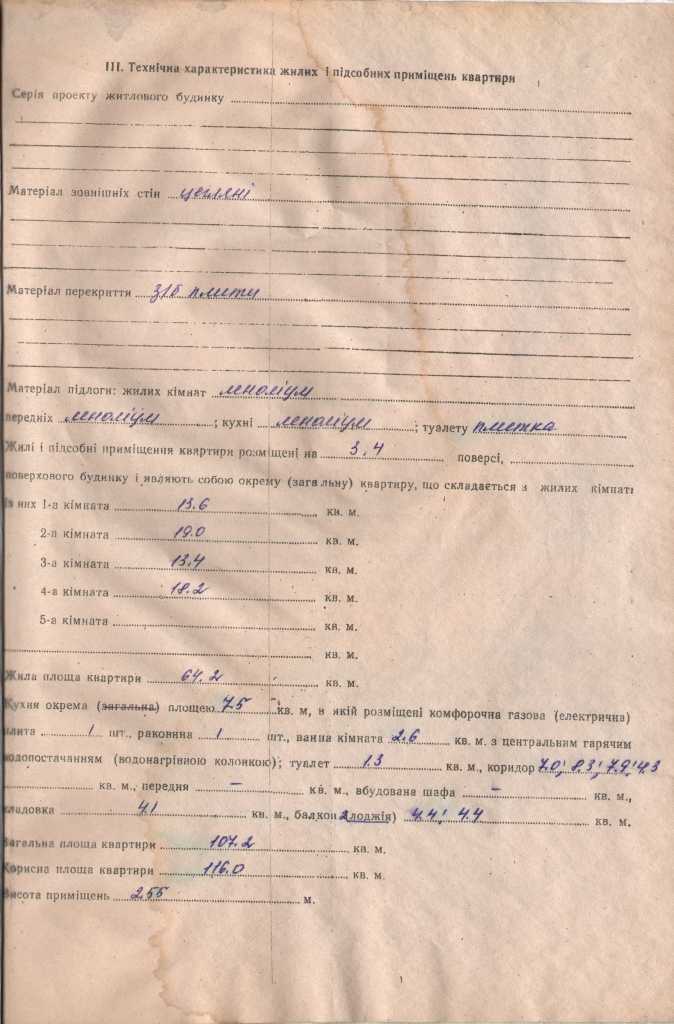 III. Технічна характеристика жилих і підсобних приміщень квартири
Серія проекту житлового будинку
Матеріал зовнішніх стін цегляні
Матеріал перекриття з/б плити
Матеріал підлоги: жилих кімнат леноліум
передніх леноліум ; кухні леноліум ; туалету плитка
Жилі і підсобні приміщення квартири розміщені на 3,4 поверсі,
поверхового будинку і являють собою окрему (загальну) квартиру, що складається з жилих кімнат:
Із них 1-а кімната 13.6 кв. м.
2-а кімната 19.0 кв. м.
3-а кімната 13.4 кв. м.
4-а кімната 18.2 кв. м.
5-а кімната кв. м.
кв. м.
Жила площа квартири 64.2 кв. м.
Кухня окрема (загальна) площею 7.5 кв. м, в якій розміщені комфорочна газова (електрична)
плита 1 шт., раковина 1 шт., ванна кімната 2.6 кв. м. з центральним гарячим
водопостачанням (водонагрівною колонкою); туалет 1.3 кв. м., коридор 7.0; 8.3; 7.9; 4.3
кв. м., передня – кв. м., вбудована шафа – кв. м.,
кладовка 4.1 кв. м., балкон 2 лоджія) 4.4; 4.4 кв. м.
Загальна площа квартири 107.2 кв. м.
Корисна площа квартири 116.0 кв. м.
Висота приміщень 2.55 м.